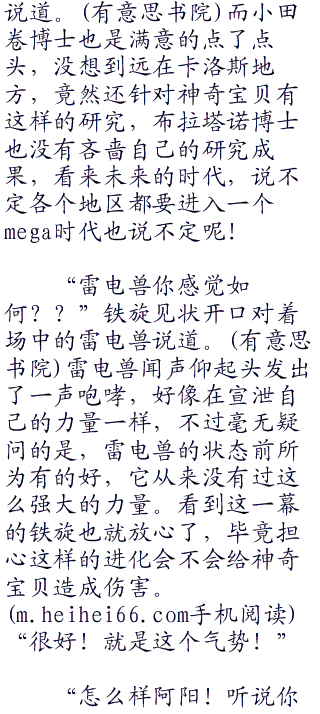 说道。(有意思书院)而小田
卷博士也是满意的点了点
头，没想到远在卡洛斯地
方，竟然还针对神奇宝贝有
这样的研究，布拉塔诺博士
也没有吝啬自己的研究成
果，看来未来的时代，说不
定各个地区都要进入一个
mega时代也说不定呢！
“雷电兽你感觉如
何？？”铁旋见状开口对着
场中的雷电兽说道。(有意思
书院)雷电兽闻声仰起头发出
了一声咆哮，好像在宣泄自
己的力量一样，不过毫无疑
问的是，雷电兽的状态前所
为有的好，它从来没有过这
么强大的力量。看到这一幕
的铁旋也就放心了，毕竟担
心这样的进化会不会给神奇
宝贝造成伤害。
(m.heihei66.com手机阅读)
“很好！就是这个气势！”
“怎么样阿阳！听说你